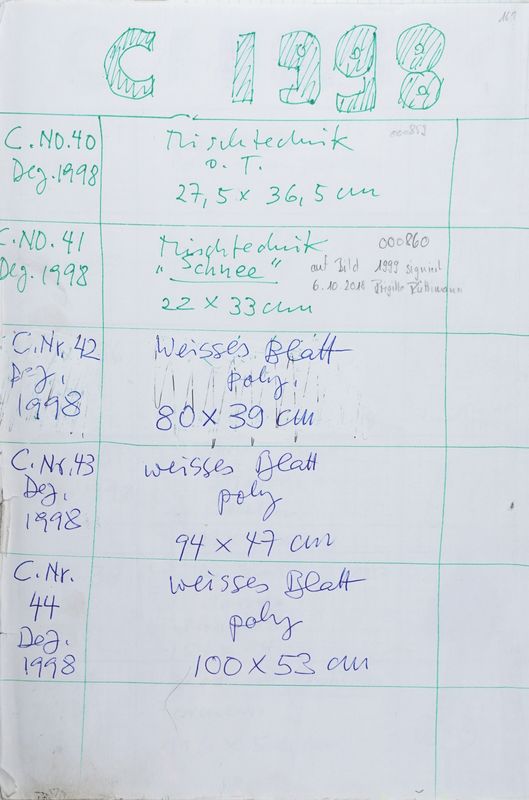 161
C 1998
C.NO.40 Mischtechnik 000859
Dez.1998 o. T.
27,5 x 36,5 cm
C.NO. 41 Mischtechnik 000860
Dez. 1998 "Schnee" auf Bild 1999 signiert
6.10.2018 Brigitte Rüttimann
22 x 33 cm
C.Nr. 42 Weisses Blatt
Dez. poly.
1998 80 x 39 cm
C.Nr.43 weisses Blatt
Dez. poly
1998 94 x 47 cm
C.Nr. weisses Blatt
44 poly
Dez.
1998 100 x 53 cm